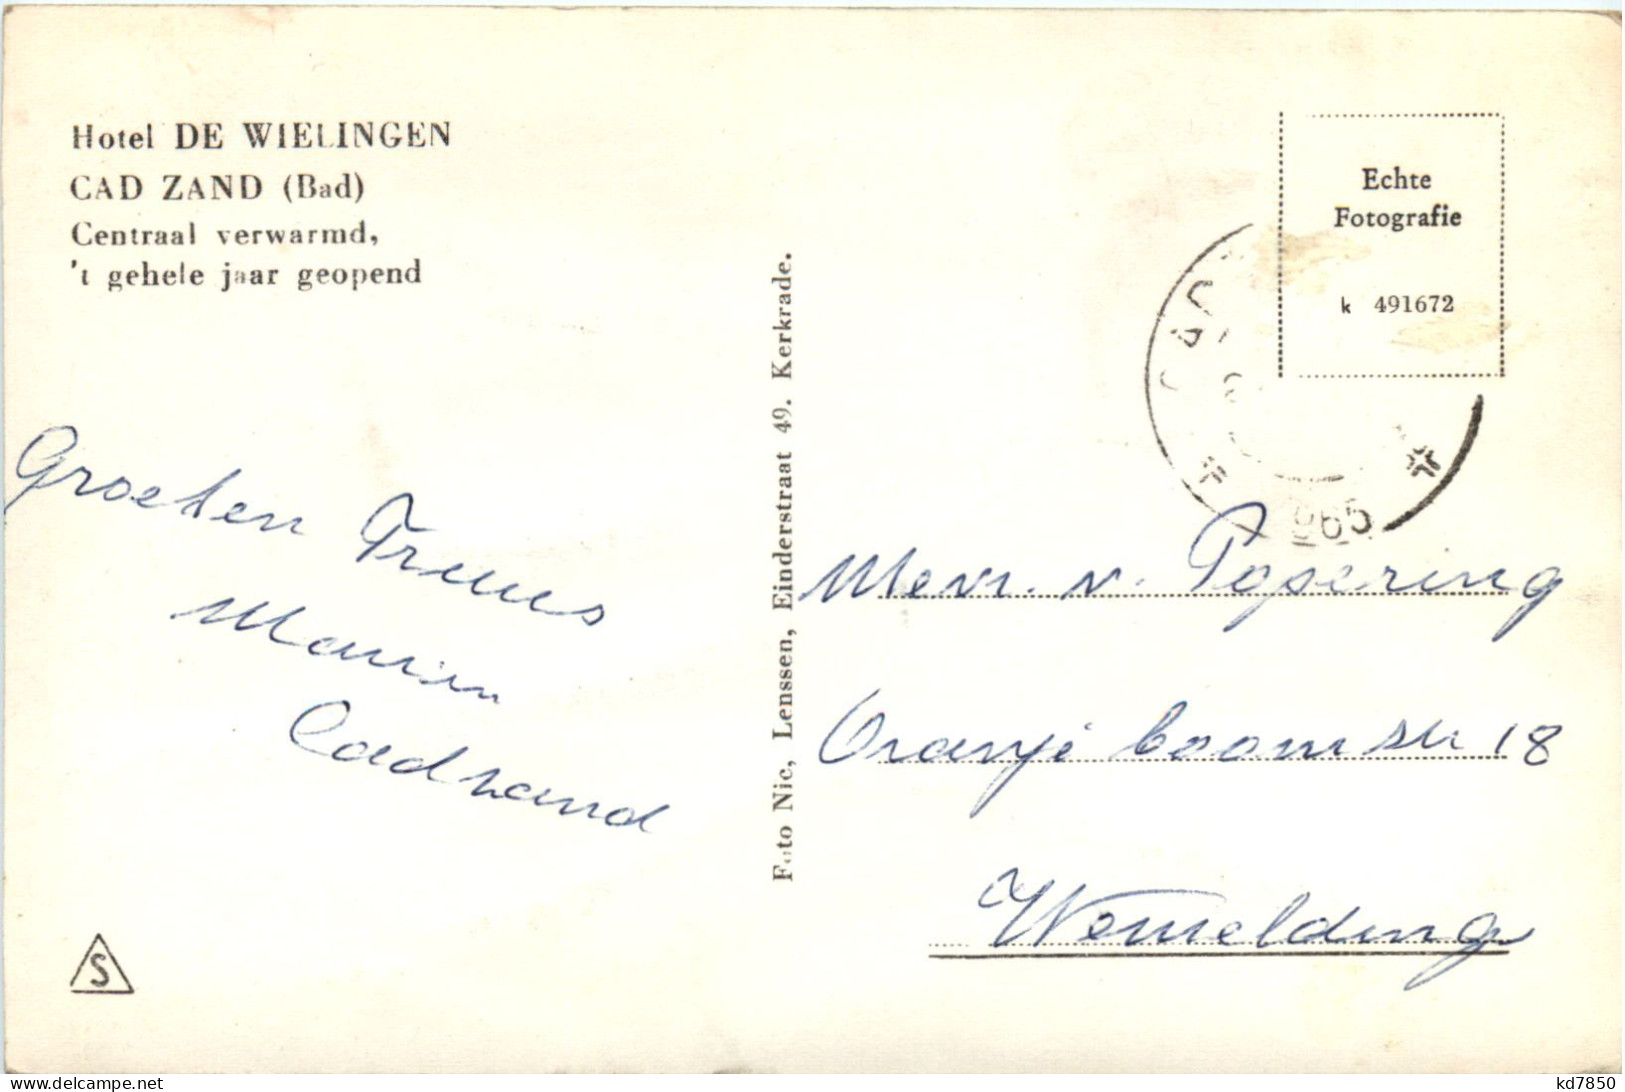 Hotel DE WIELINGEN
CAD ZAND (Bad)
Centraal verwarmd,
't gehele jaar geopend
Groeten Truus
Cadzand
S
Foto Nic, Lenssen, Einderstraat 49. Kerkrade.
Echte
Fotografie
k 491672
965
Mevr. v. Popering
Oranjeboomstr 18
Wemeldinge
kd7850